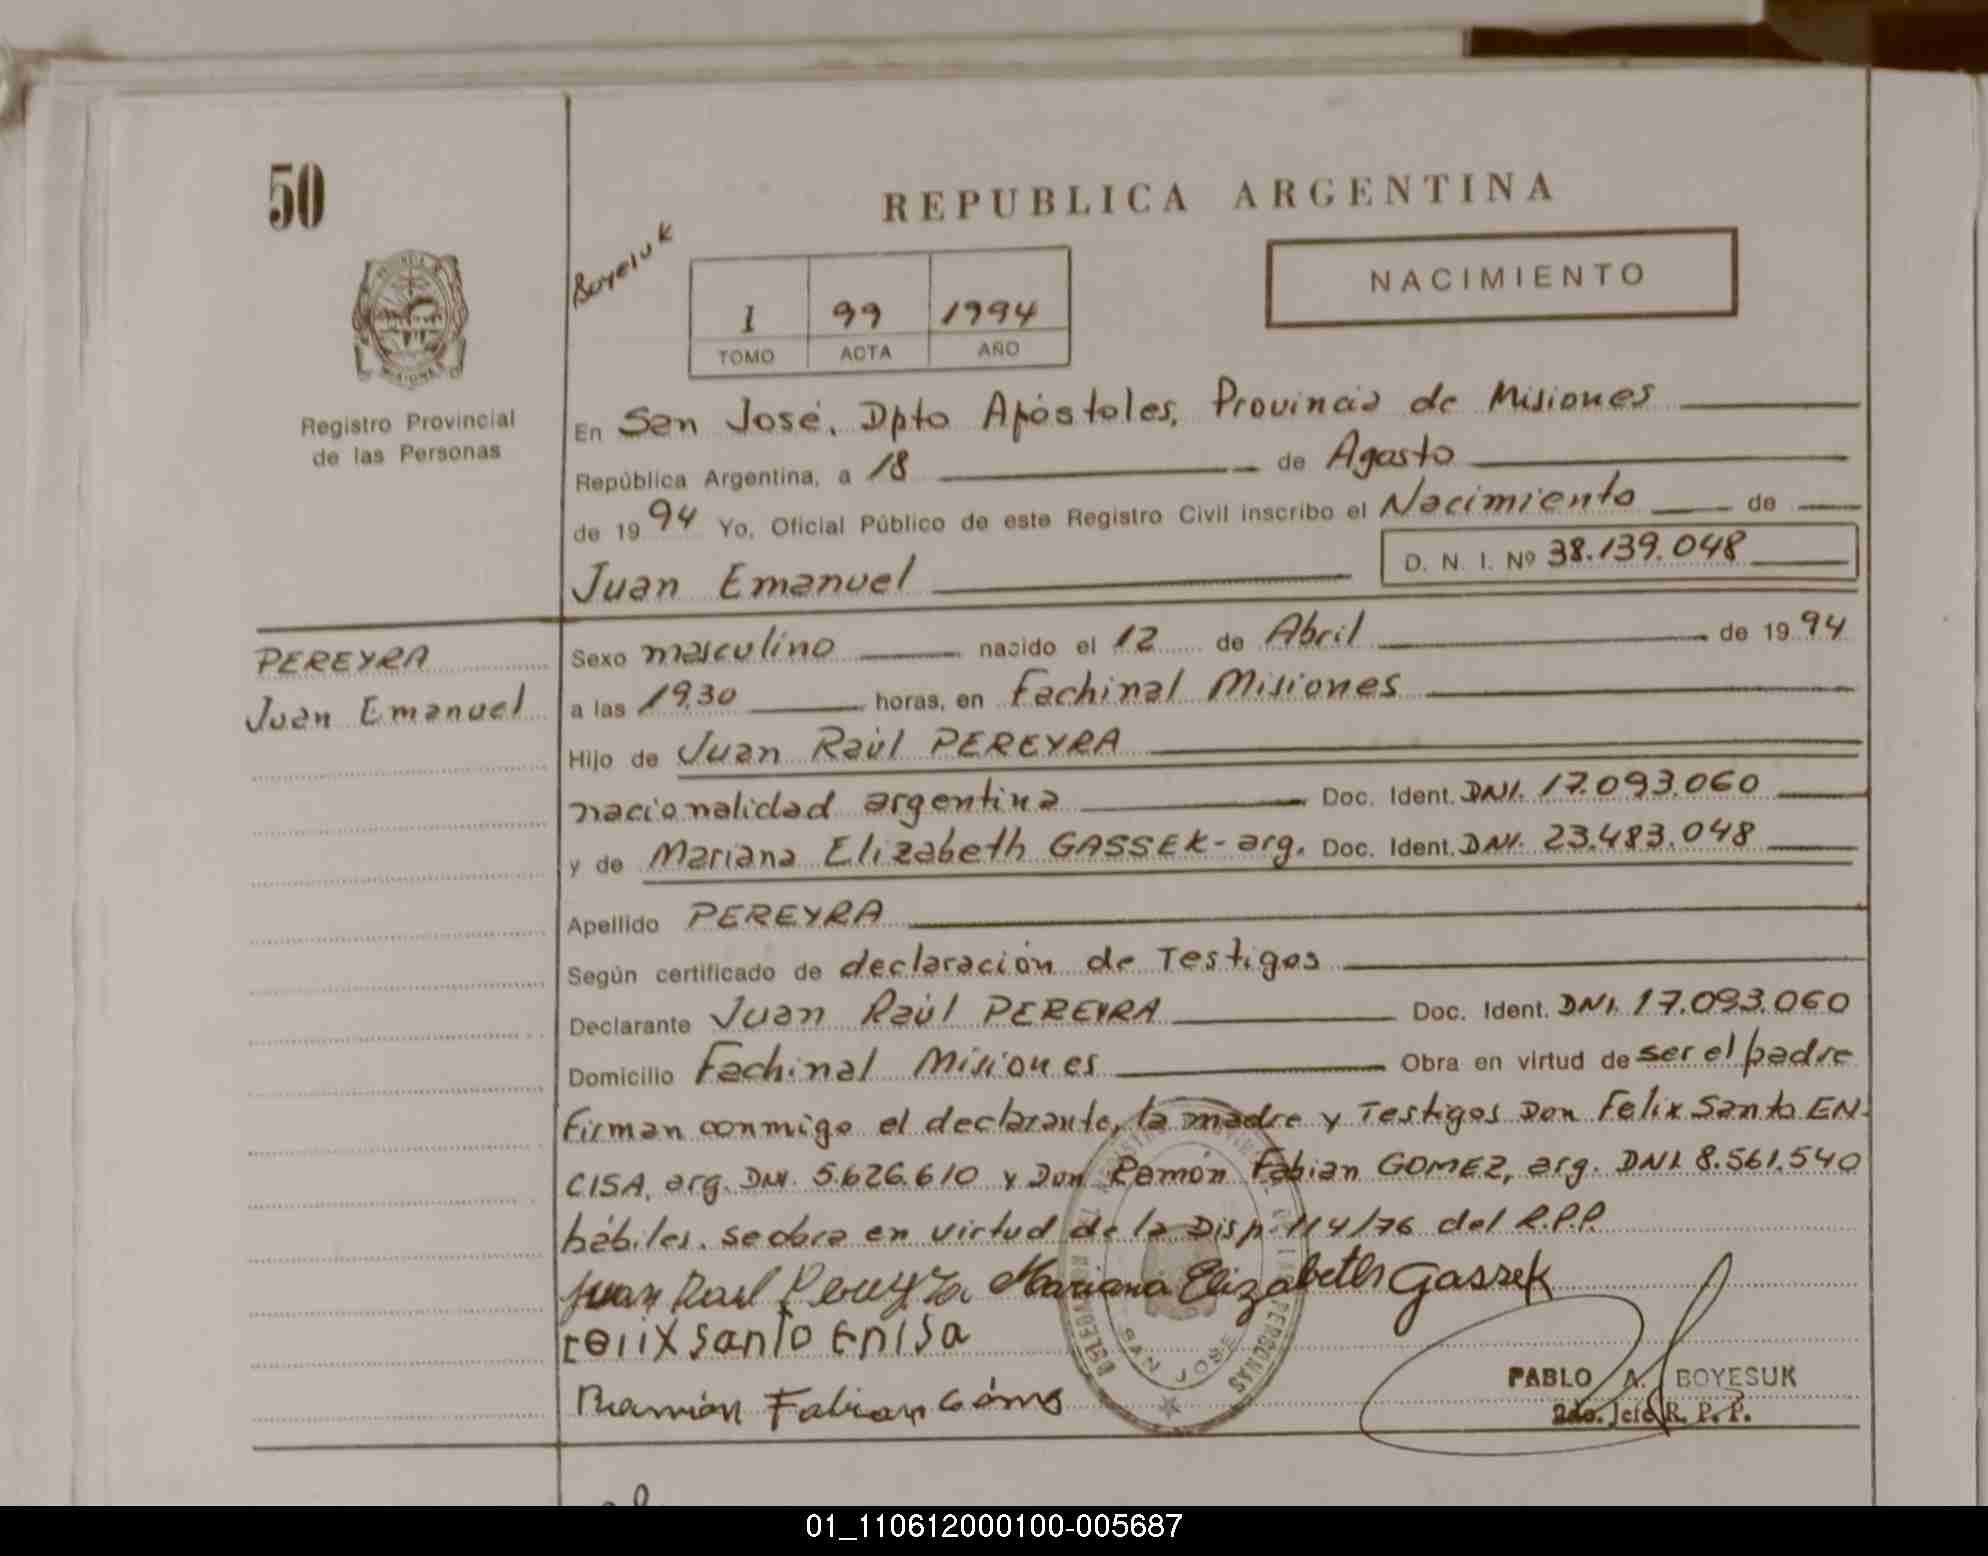 50
REPUBLICA ARGENTINA
Boyesuk
NACIMIENTO
I 99 1994
TOMO ACTA AÑO
Registro Provincial
de las Personas
En San José, Dpto Apóstoles, Provincia de Misiones
República Argentina, a 18 de Agosto
de 1994 Yo, Oficial Público de este Registro Civil inscribo el Nacimiento de
Juan Emanuel D. N. I. Nº 38.139.048
PEREYRA
Juan Emanuel
Sexo masculino nacido el 12 de Abril de 1994
a las 19,30 horas, en Fachinal Misiones
Hijo de Juan Raúl PEREYRA
nacionalidad argentina Doc. Ident. DNI. 17.093.060
y de Mariana Elizabeth GASSEK - arg. Doc. Ident. DNI. 23.483.048
Apellido PEREYRA
Según certificado de declaración de Testigos
Declarante Juan Raúl PEREYRA Doc. Ident. DNI. 17.093.060
Domicilio Fachinal Misiones Obra en virtud de ser el padre
Firman conmigo el declarante, la madre y Testigos Don Felix Santo EN-
CISA, arg. DNI. 5.626.610 y Don Ramón Fabian GOMEZ, arg. DNI. 8.561.540
hábiles. se obra en virtud de la Disp. 114/76 del R.P.P.
Juan Raul Pereyra Mariana Elizabeth Gassek
Felix Santo Enisa
Ramón Fabian Góms
SAN JOSE
PERSONAS
PABLO A. BOYESUK
2do. Jefe R. P. P.
01_110612000100-005687